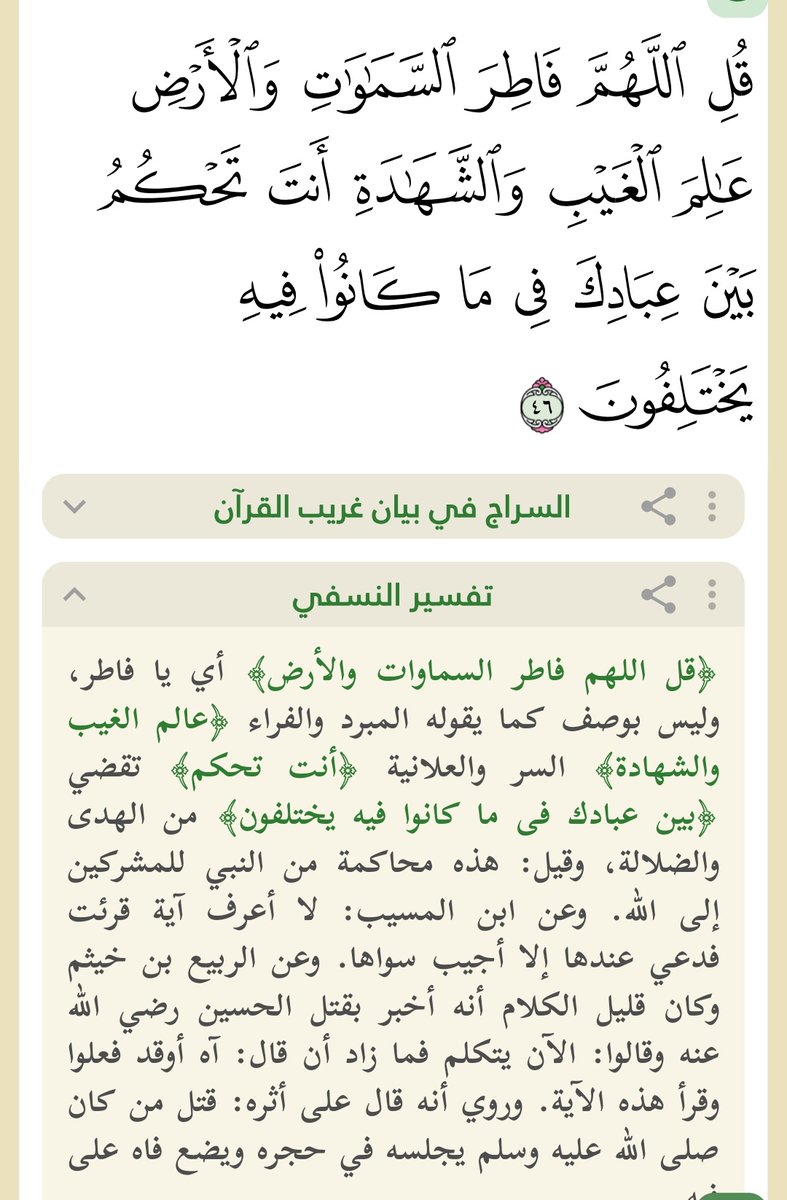 قُلِ ٱللَّهُمَّ فَاطِرَ ٱلسَّمَٰوَٰتِ وَٱلْأَرْضِ
عَٰلِمَ ٱلْغَيْبِ وَٱلشَّهَٰدَةِ أَنتَ تَحْكُمُ
بَيْنَ عِبَادِكَ فِى مَا كَانُوا۟ فِيهِ
يَخْتَلِفُونَ ٤٦
السراج في بيان غريب القرآن
تفسير النسفي
﴿قل اللهم فاطر السماوات والأرض﴾ أي يا فاطر،
وليس بوصف كما يقوله المبرد والفراء ﴿عالم الغيب
والشهادة﴾ السر والعلانية ﴿أنت تحكم﴾ تقضي
﴿بين عبادك فى ما كانوا فيه يختلفون﴾ من الهدى
والضلالة، وقيل: هذه محاكمة من النبي للمشركين
إلى الله. وعن ابن المسيب: لا أعرف آية قرئت
فدعي عندها إلا أجيب سواها. وعن الربيع بن خيثم
وكان قليل الكلام أنه أخبر بقتل الحسين رضي الله
عنه وقالوا: الآن يتكلم فما زاد أن قال: آه أوقد فعلوا
وقرأ هذه الآية. وروي أنه قال على أثره: قتل من كان
صلى الله عليه وسلم يجلسه في حجره ويضع فاه على